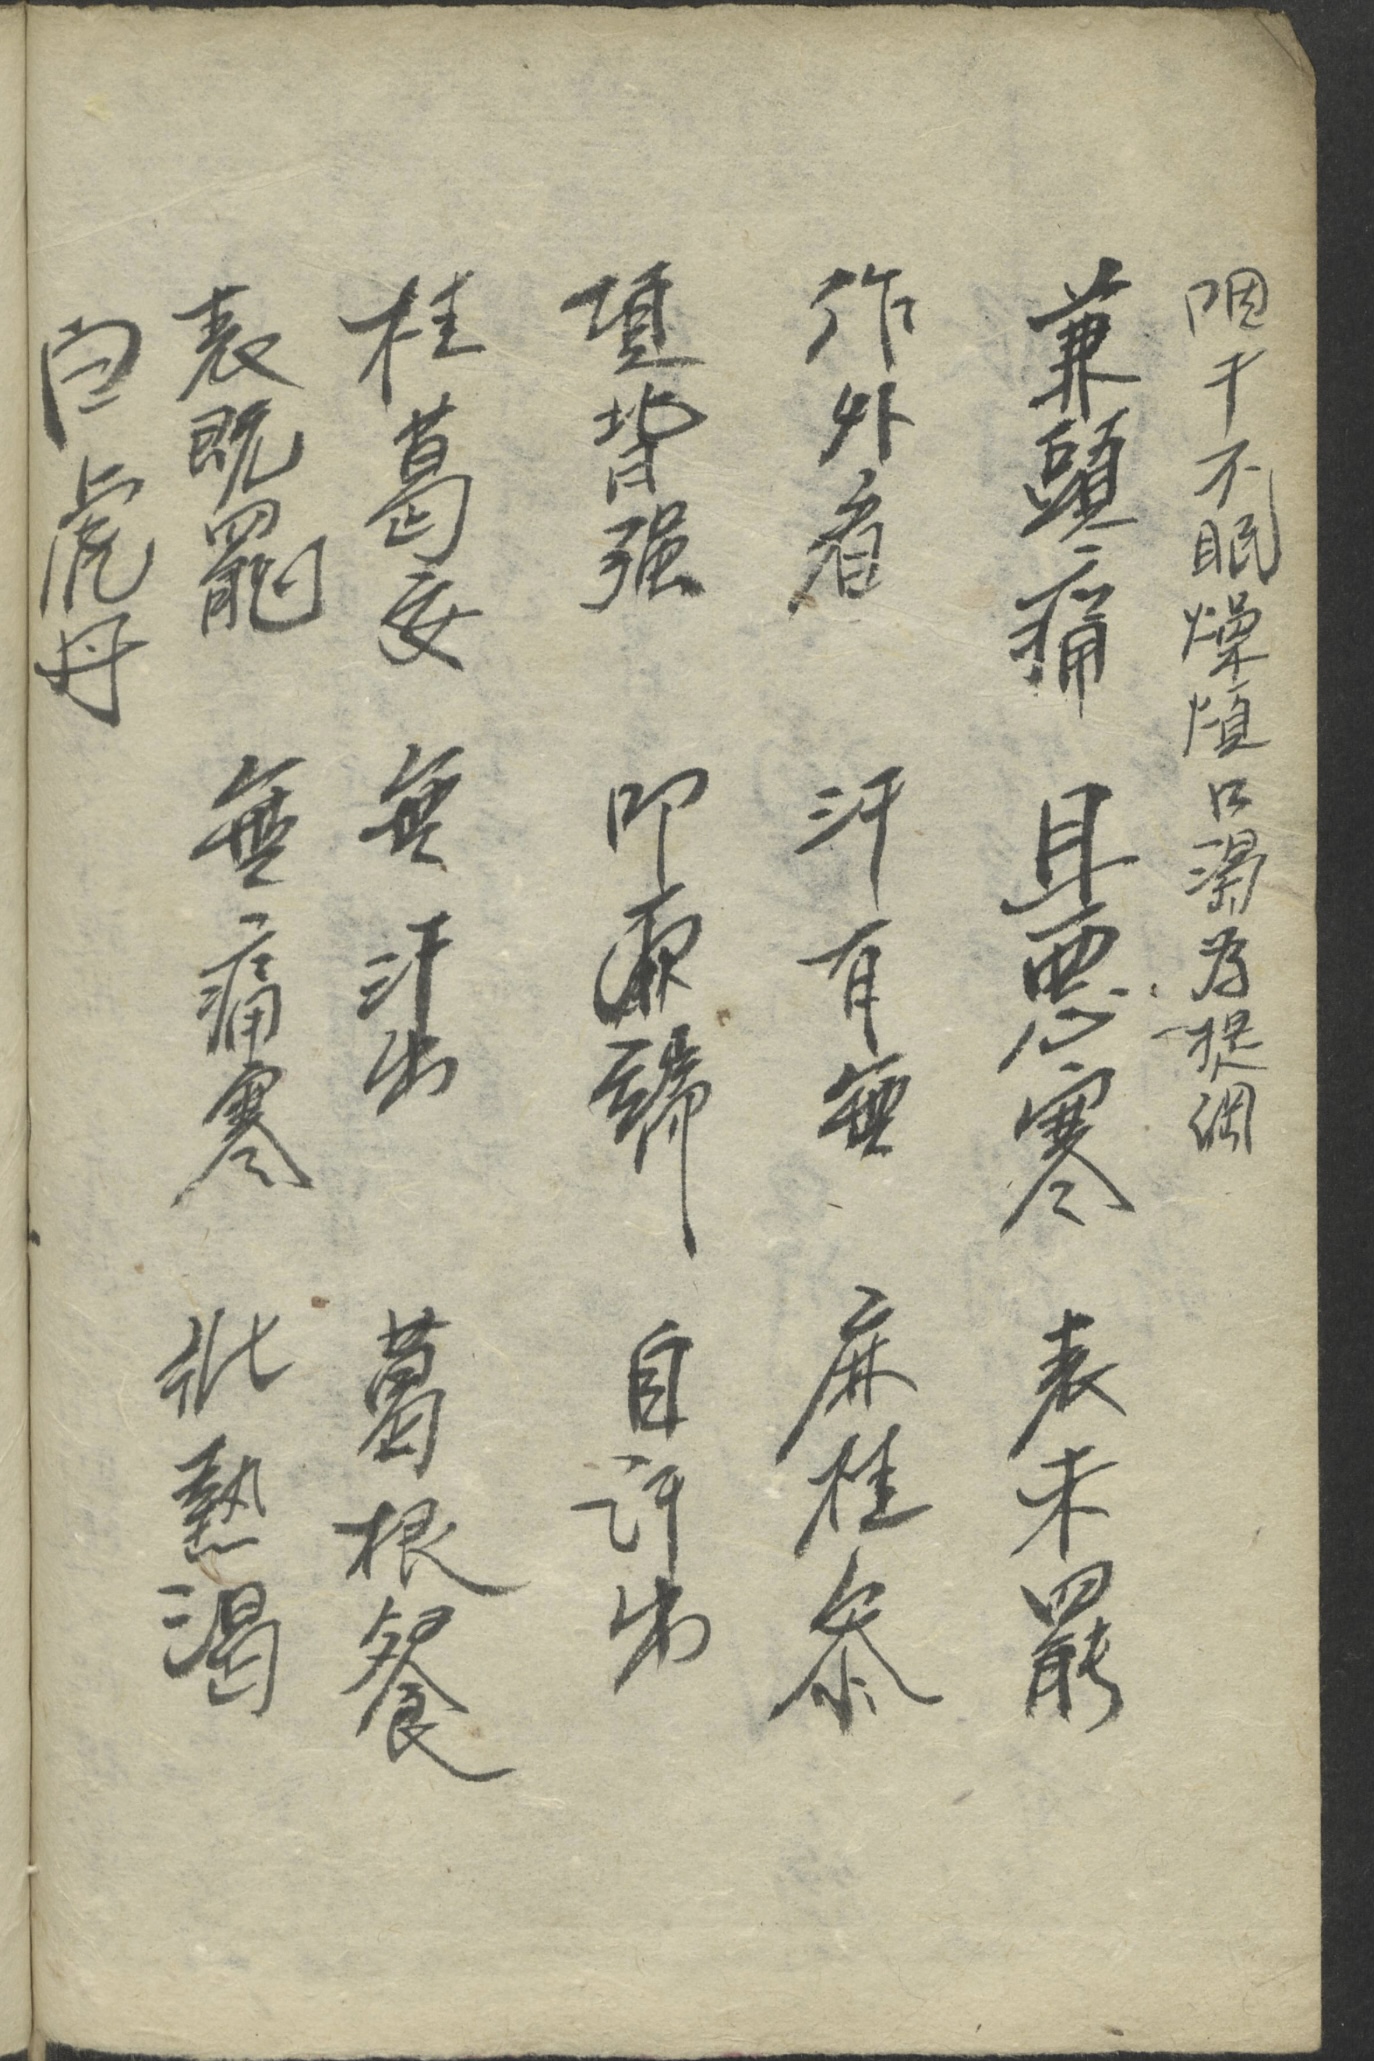 咽干不眠燥煩口渴为提綱
兼頭痛 且悪寒 表未罷
作外看 汗有無 麻桂叅
項背强 叩頭號 自汗出
桂葛妥 無汗出 葛根餐
表既罷 無痛寒 祇熱渴
白虎丹